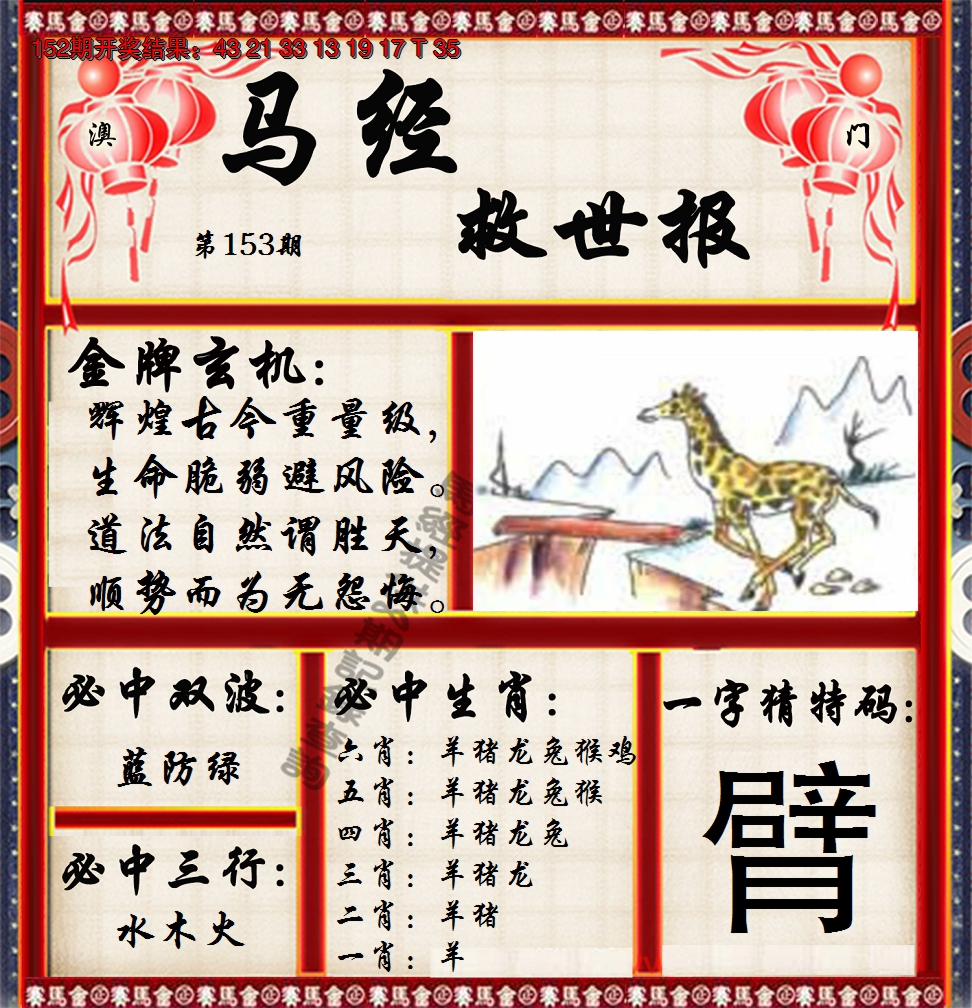 152期开奖结果：43 21 33 13 19 17 T 35
澳
门
马经
救世报
第153期
金牌玄机：
辉煌古今重量级，
生命脆弱避风险。
道法自然谓胜天，
顺势而为无怨悔。
必中双波：
蓝防绿
必中三行：
水木火
必中生肖：
六肖：羊猪龙兔猴鸡
五肖：羊猪龙兔猴
四肖：羊猪龙兔
三肖：羊猪龙
二肖：羊猪
一肖：羊
一字猜特码：
臂